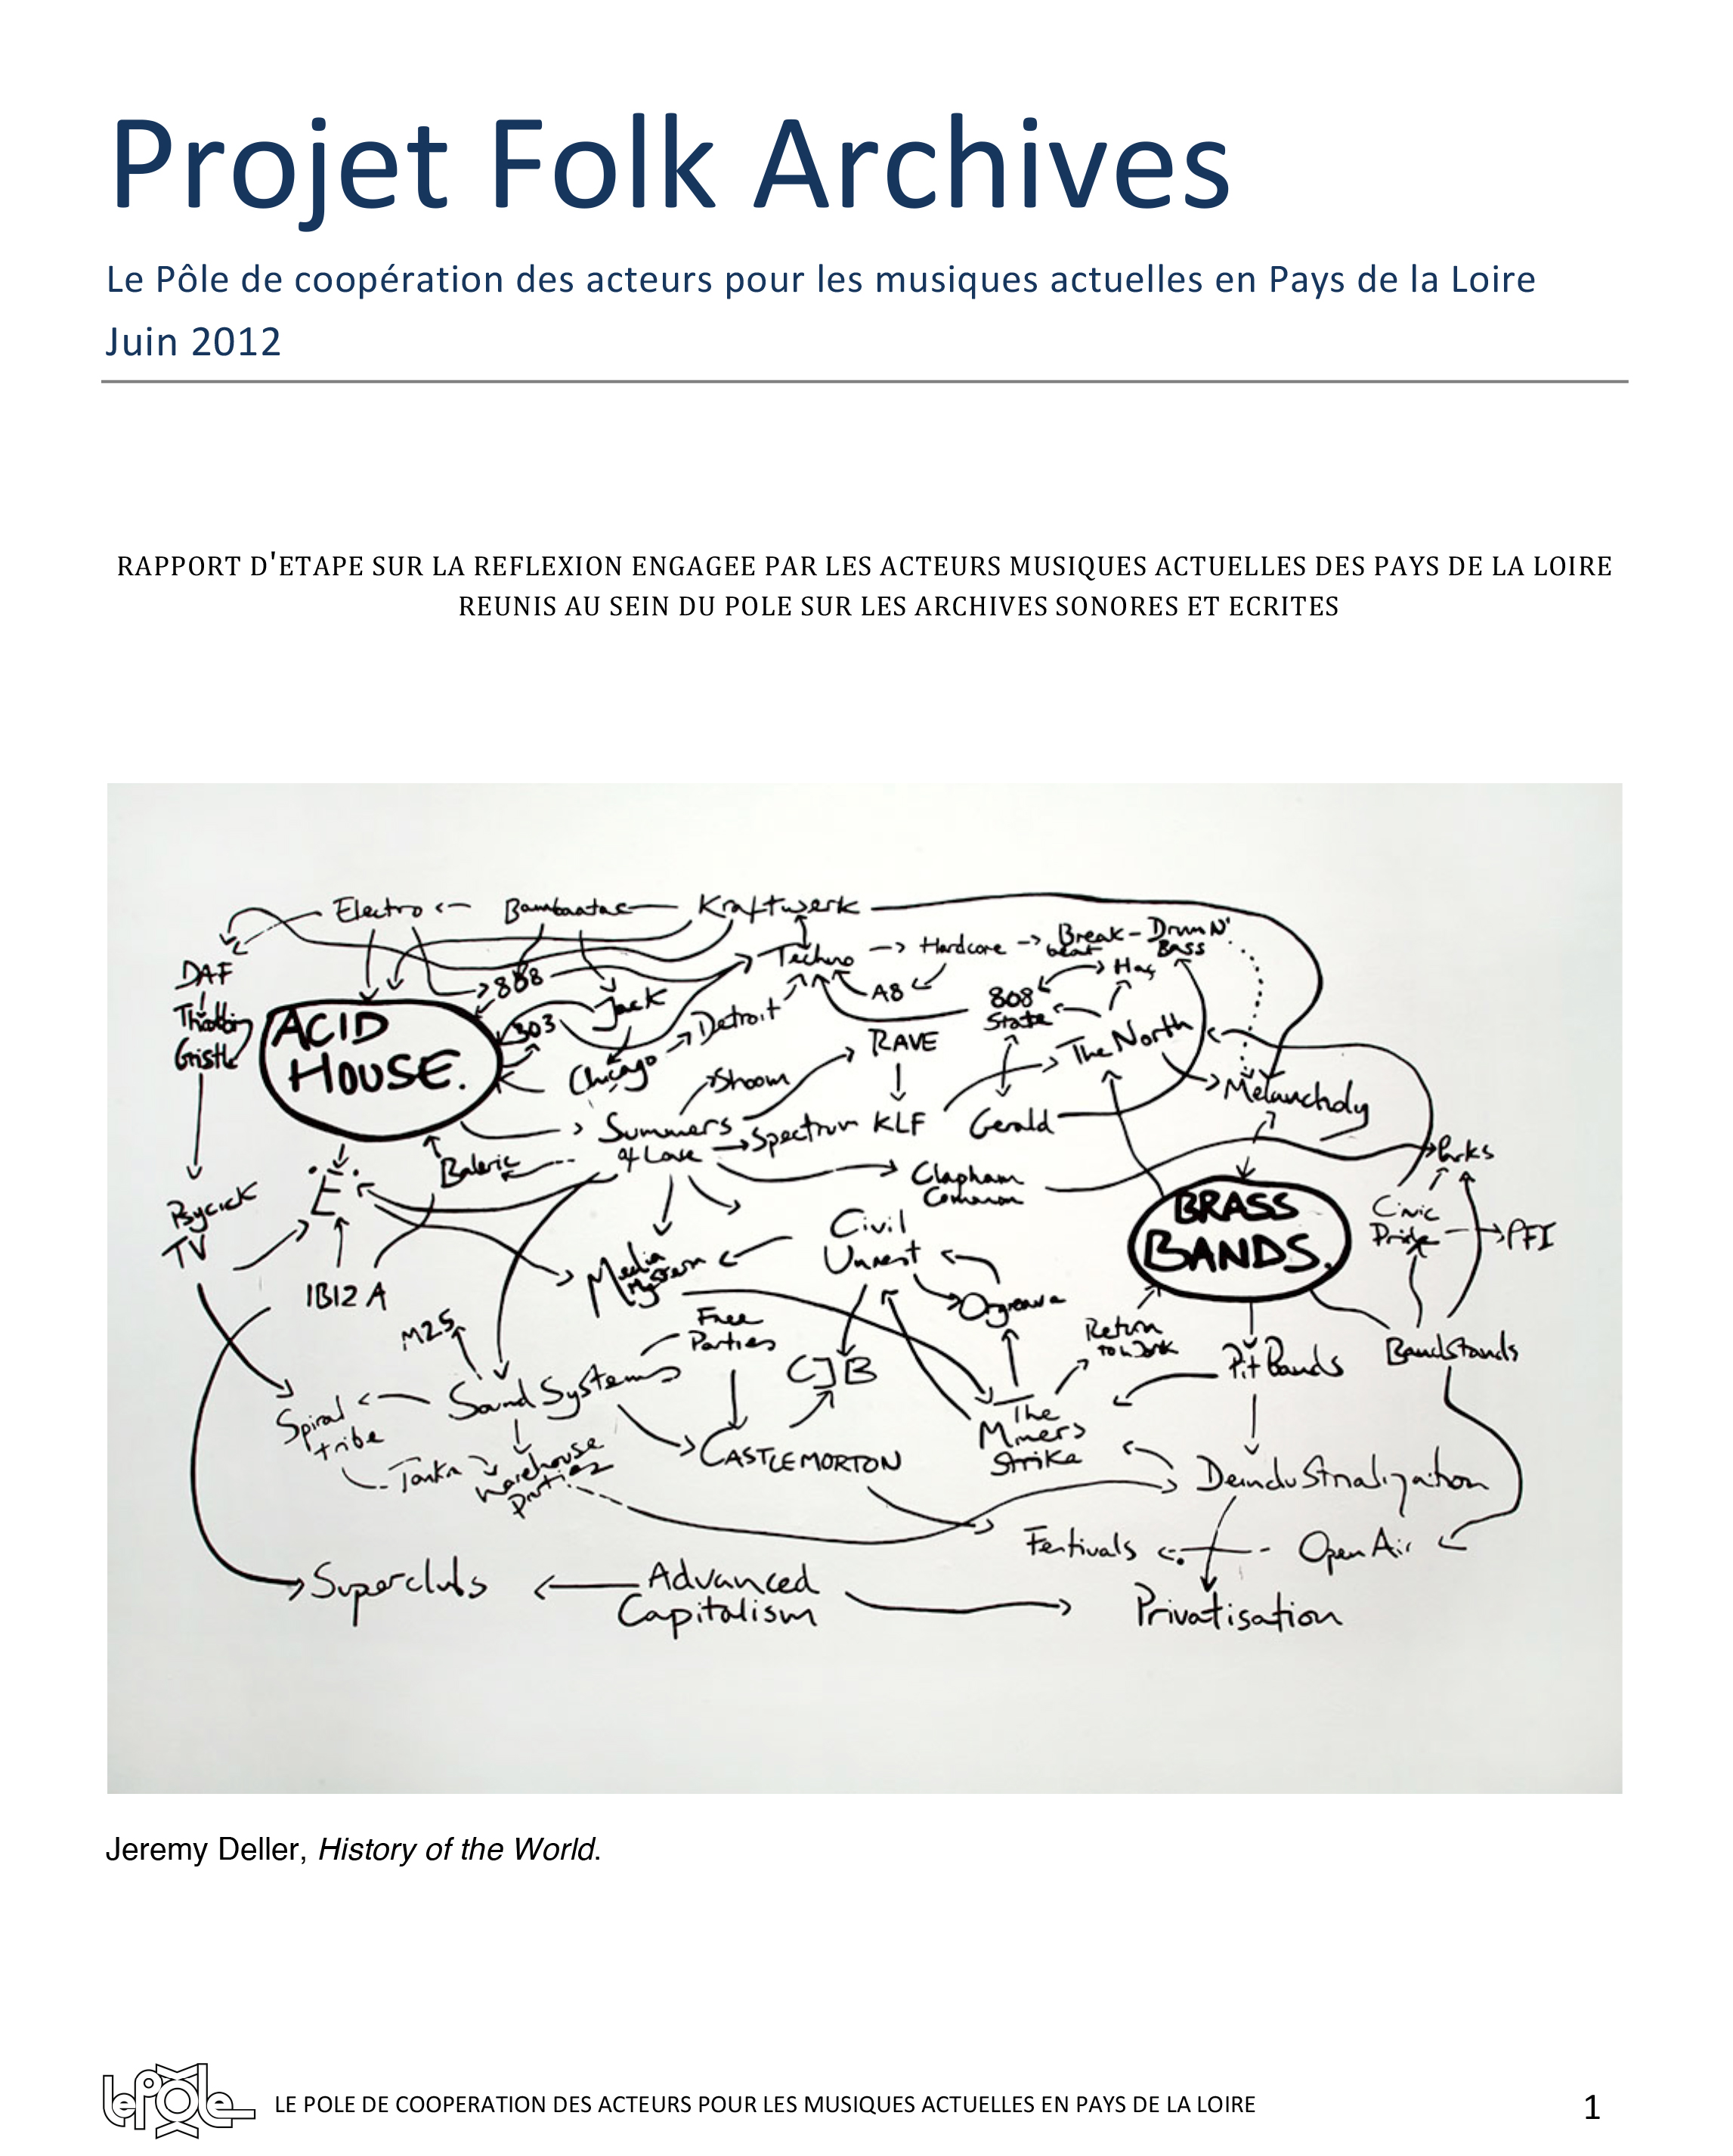 Projet Folk Archives
Le Pôle de coopération des acteurs pour les musiques actuelles en Pays de la Loire
Juin 2012
RAPPORT D'ETAPE SUR LA REFLEXION ENGAGEE PAR LES ACTEURS MUSIQUES ACTUELLES DES PAYS DE LA LOIRE
REUNIS AU SEIN DU POLE SUR LES ARCHIVES SONORES ET ECRITES
Electro
Bambaataa
Kraftwerk
DAF
Throbbing
Gristle
ACID
HOUSE.
303
Jack
Chicago
Detroit
Techno
Hardcore
Break-
beat
Drum N'
Bass
A8
808
State
The North
RAVE
Shoom
Summers
of Love
Spectrum
KLF
Gerald
Melancholy
Baleric
E
Clapham
Common
Parks
BRASS
BANDS.
Civic
Pride
PFI
Psycick
TV
IBIZA
Media
Civil
Unrest
Orgreave
M25
Free
Parties
CJB
Return
to Work
Pit Bands
Bandstands
Spiral
tribe
Sound Systems
Tonka
Warehouse
Parties
CASTLEMORTON
The
Miners
Strike
Deindustrialization
Festivals
Open Air
Superclubs
Advanced
Capitalism
Privatisation
Jeremy Deller, History of the World.
lePôle
LE POLE DE COOPERATION DES ACTEURS POUR LES MUSIQUES ACTUELLES EN PAYS DE LA LOIRE
1